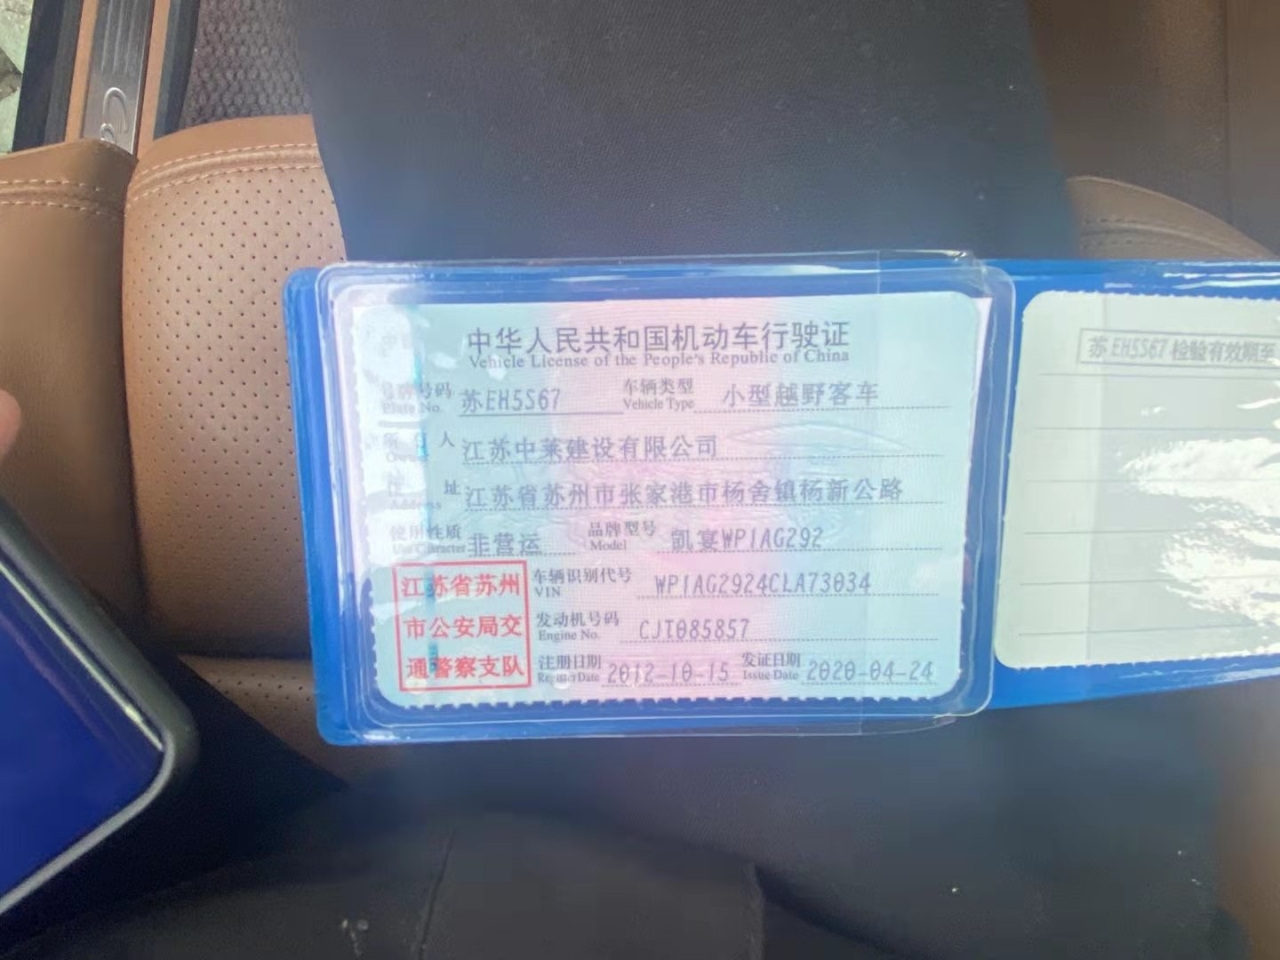 中华人民共和国机动车行驶证
Vehicle License of the People's Republic of China
号牌号码 苏EH5S67 车辆类型 小型越野客车
Plate No. Vehicle Type
人 江苏中莱建设有限公司
址 江苏省苏州市张家港市杨舍镇杨新公路
Address
使用性质 非营运 品牌型号 凯宴WP1AG292
Use Character Model
江苏省苏州
市公安局交
通警察支队
车辆识别代号 WP1AG2924CLA73034
VIN
发动机号码 CJT085857
Engine No.
注册日期 2012-10-15 发证日期 2020-04-24
Register Date Issue Date
苏EH5S67 检验有效期至